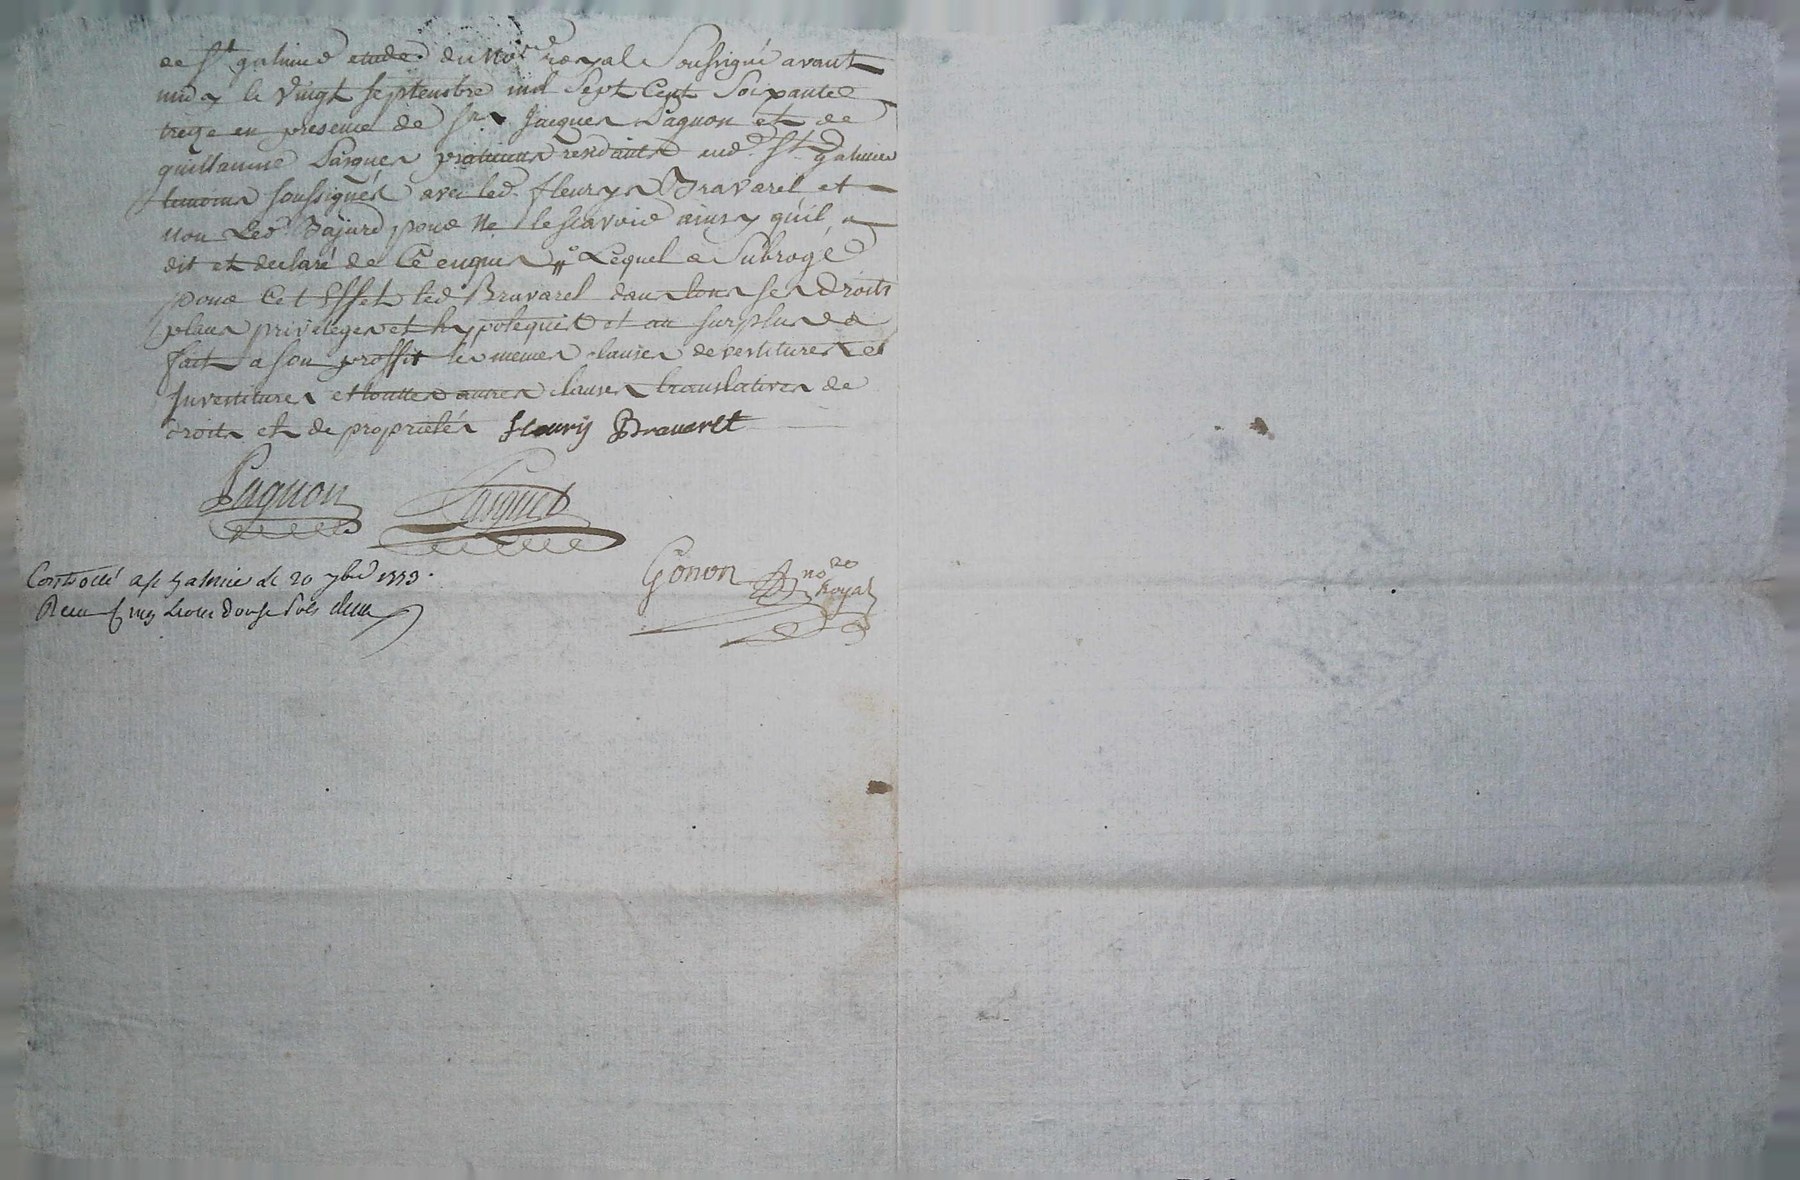 de St galmier etude du No.re royal Soussigné avant
midy le vingt septembre mil Sept Cent Soixante
treize en presence de Sr. Jacques Pagnon et de
guillaume Paquet praticiens residants aud. St galmier
temoins soussignés avec led. fleury Bravarel et
non Led. Bajard pour Ne le scavoir ainsy qu'il a
dit et declaré de Ce enquis Lequel a Subrogé
pour Cet Effet led Bravarel dans tous ses Droits
place privileges et hypoteques et au surplus a
fait a son proffit les memes clauses devestitures et
Investitures et touttes autres clauses translatives de
droits et de proprietés fleurij Bravarelt
Pagnon Paquet
Gonon no.re Royal
Controllé a St Galmier le 20 7bre 1773.
Recu Cinq Livres Douze Sols